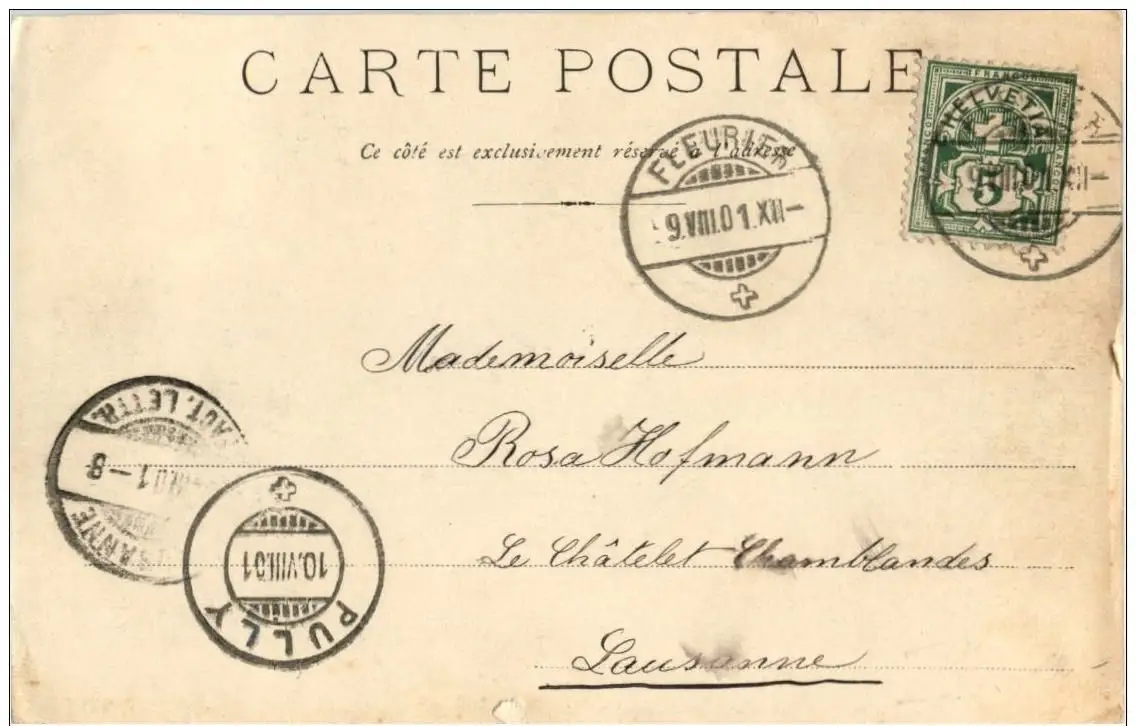 CARTE POSTALE
Ce côté est exclusivement réservé à l'adresse
FRANCO
HELVETIA
FRANCO
FRANCO
5
FLEURIER
9.VIII.01.XII–
9.VIII.01.XII–
Mademoiselle
Rosa Hofmann
Le Châtelet Chamblandes
Lausanne
LETTR.
01–8
PULLY
10.VIII.01